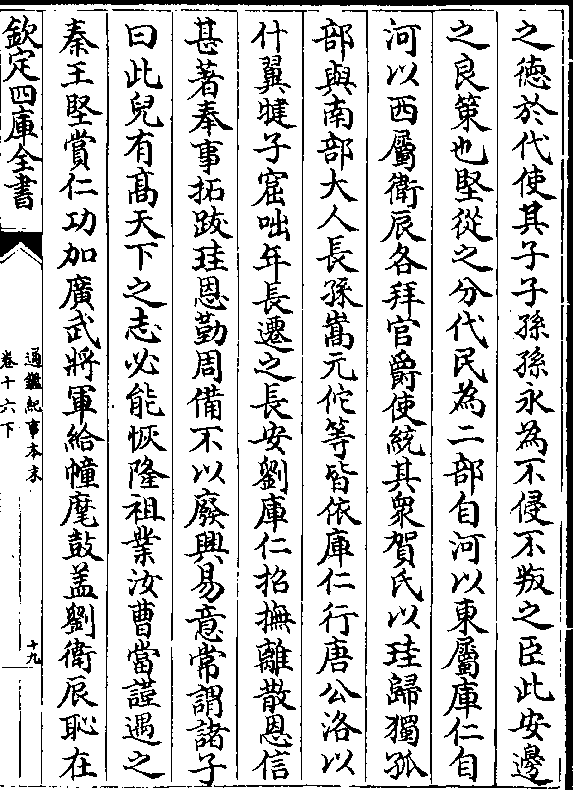 之德於代使其子子孫孫永為不侵不叛之臣此安邊
之良策也堅從之分代民為二部自河以東屬庫仁自
河以西屬衛辰各拜官爵使統其衆賀氏以珪歸獨孤
部與南部大人長孫嵩元佗等皆依庫仁行唐公洛以
什翼犍子窟咄年長遷之長安劉庫仁招撫離散恩信
甚著奉事拓跋珪恩勤周備不以廢興易意常謂諸子
曰此兒有髙天下之志必能恢隆祖業汝曹當謹遇之
秦王堅賞仁功加廣武將軍給幢麾鼓盖劉衛辰恥在
欽定四庫全書
通鑑紀事本末
卷十六下
十九